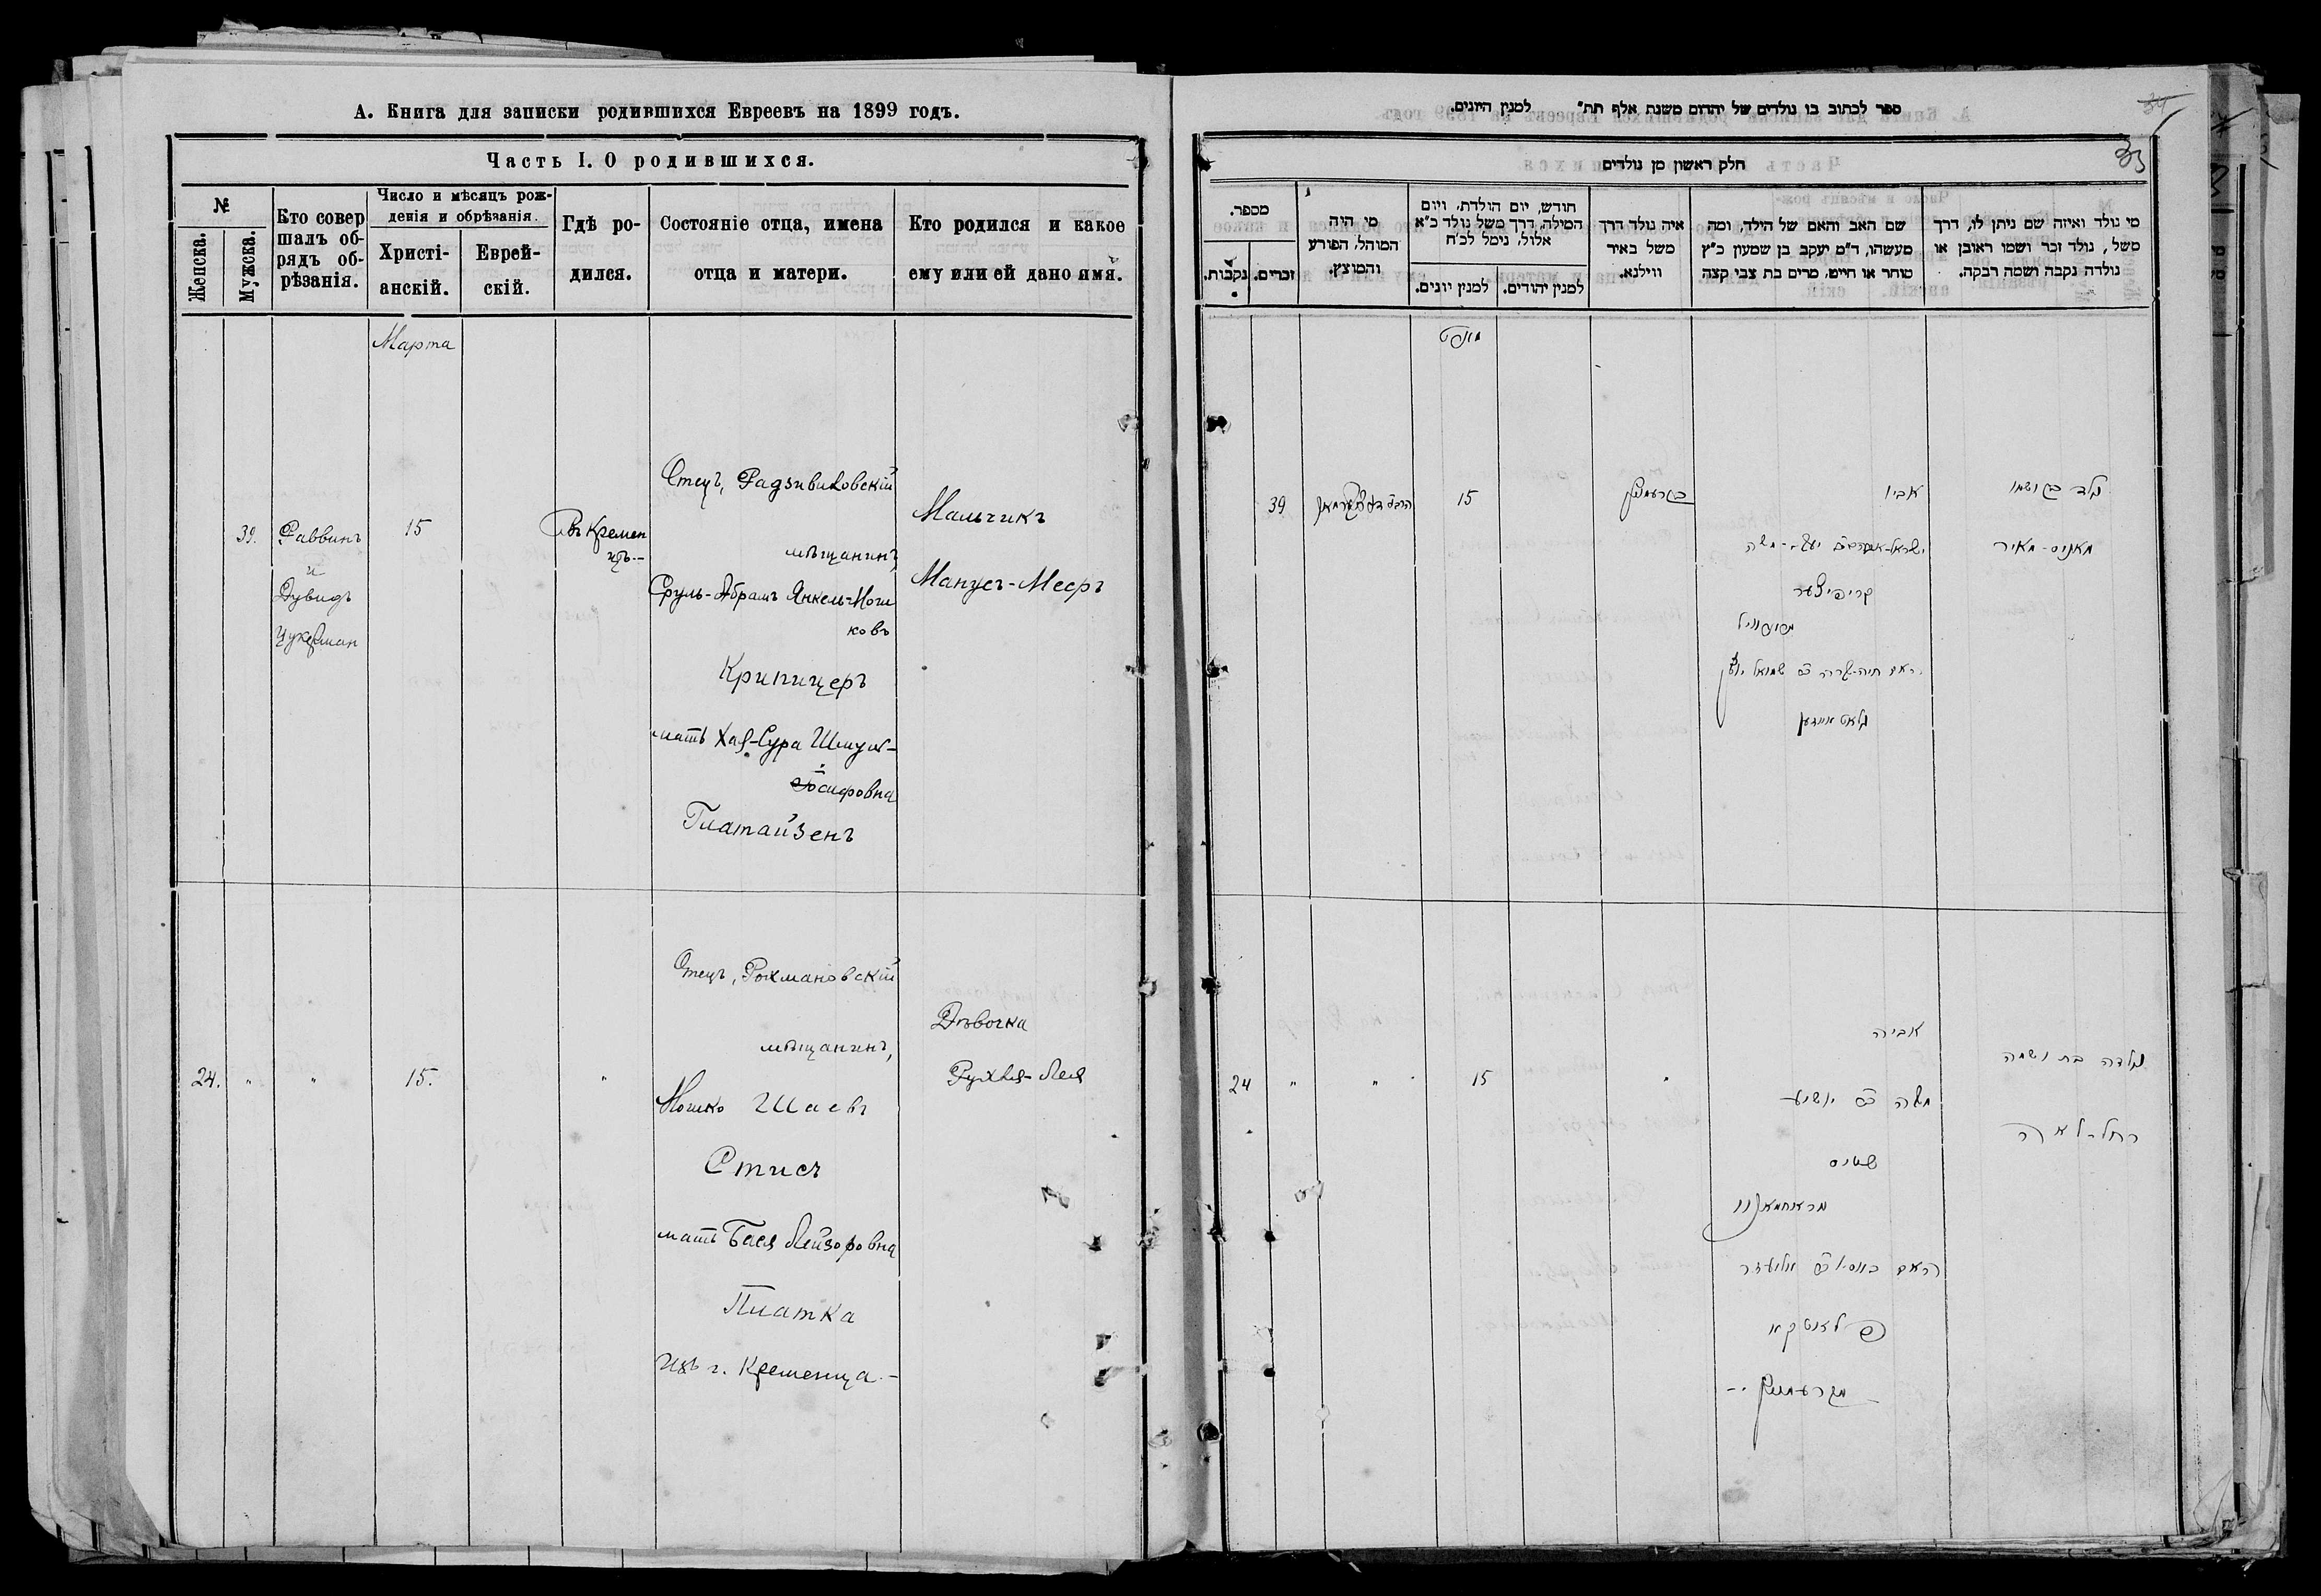 А. Книга для записки родившихся Евреевъ на 1899 годъ.
Часть I. О родившихся.
№
Женска.
Мужска.
Кто совер
шалъ об-
рядъ об-
рѣзанія.
Число и мѣсяцъ рож-
денія и обрѣзанія.
Христі-
анскій.
Еврей-
скій.
Гдѣ ро-
дился.
Состояніе отца, имена
отца и матери.
Кто родился и какое
ему или ей дано имя.
Марта
39.
Раввинъ
и
Дувидъ
Цукерман
15
Въ Кремен
цѣ.-
Отецъ, Радзивиловскій
мѣщанинъ
Сруль-Абрамъ Янкель-Мош
ковъ
Крипицеръ
мать Хая-Сура Шмуль-
Іосифовна
Глатайзенъ
Мальчикъ
Манусъ-Мееръ
24.
"
"
15.
"
Отецъ, Рохмановскій
мѣщанинъ,
Мошко Шаевъ
Стисъ
мать Бася Лейзоровна
Платка
Изъ г. Кременца.-
Дѣвочка
Рухля-Лея
ספר לכתוב בו נולדים של יהדום משנת אלף תת״ למנין היונים.
33
חלק ראשון מן נולדים
מספר.
נקבות.
זכרים.
מי היה
המוהל, הפורע
והמוצץ.
חודש, יום הולדת, ויום
המילה, דרך משל נולד כ״א
אלול, נימל לכ״ח
למנין יונים.
למנין יהודים.
איה נולד דרך
משל באיר
ווילנא.
שם האב והאם של הילד, ומה
מעשהו, ד״מ יעקב בן שמעון כ״ץ
סוחר או חייט, מרים בת צבי קצה
מי נולד ואיזה שם ניתן לו, דרך
משל, נולד זכר ושמו ראובן או
נולדה נקבה ושמה רבקה.
מארט
39
15
בקרעמניץ
אביו
ישראל-אברהם יעקב-משה
קריפיצער
האם חיה-שרה שמואל יוסף
גלאט אייזען
נולד בן ושמו
מאניס-מאיר
24
"
"
15
"
אביה
משה יושיע
שטיס
מראחמאנוו
האם באסי אליעזר
פלאטקא
מקרעמניץ --
נולדה בת ושמה
רחל-לאה